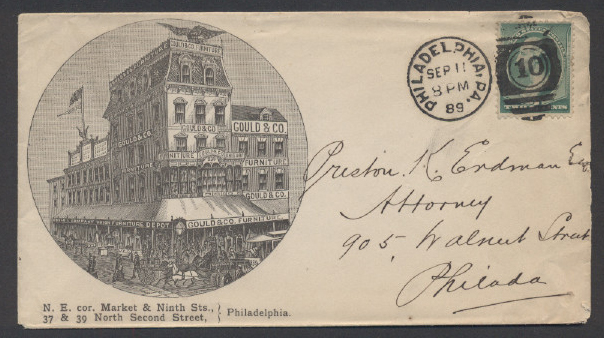 GOULD & CO. FURNITURE
GOULD & CO.
GOULD & CO.
FURNITURE
GOULD & CO.
FURNITURE
GOULD & CO.
FURNITURE DEPOT
GOULD & CO. FURNITURE
N. E. cor. Market & Ninth Sts.,
37 & 39 North Second Street,
Philadelphia.
PHILADELPHIA, PA.
SEP 11
8 PM
89
10
Preston K. Erdman Esq
Attorney
905, Walnut Street
Philada